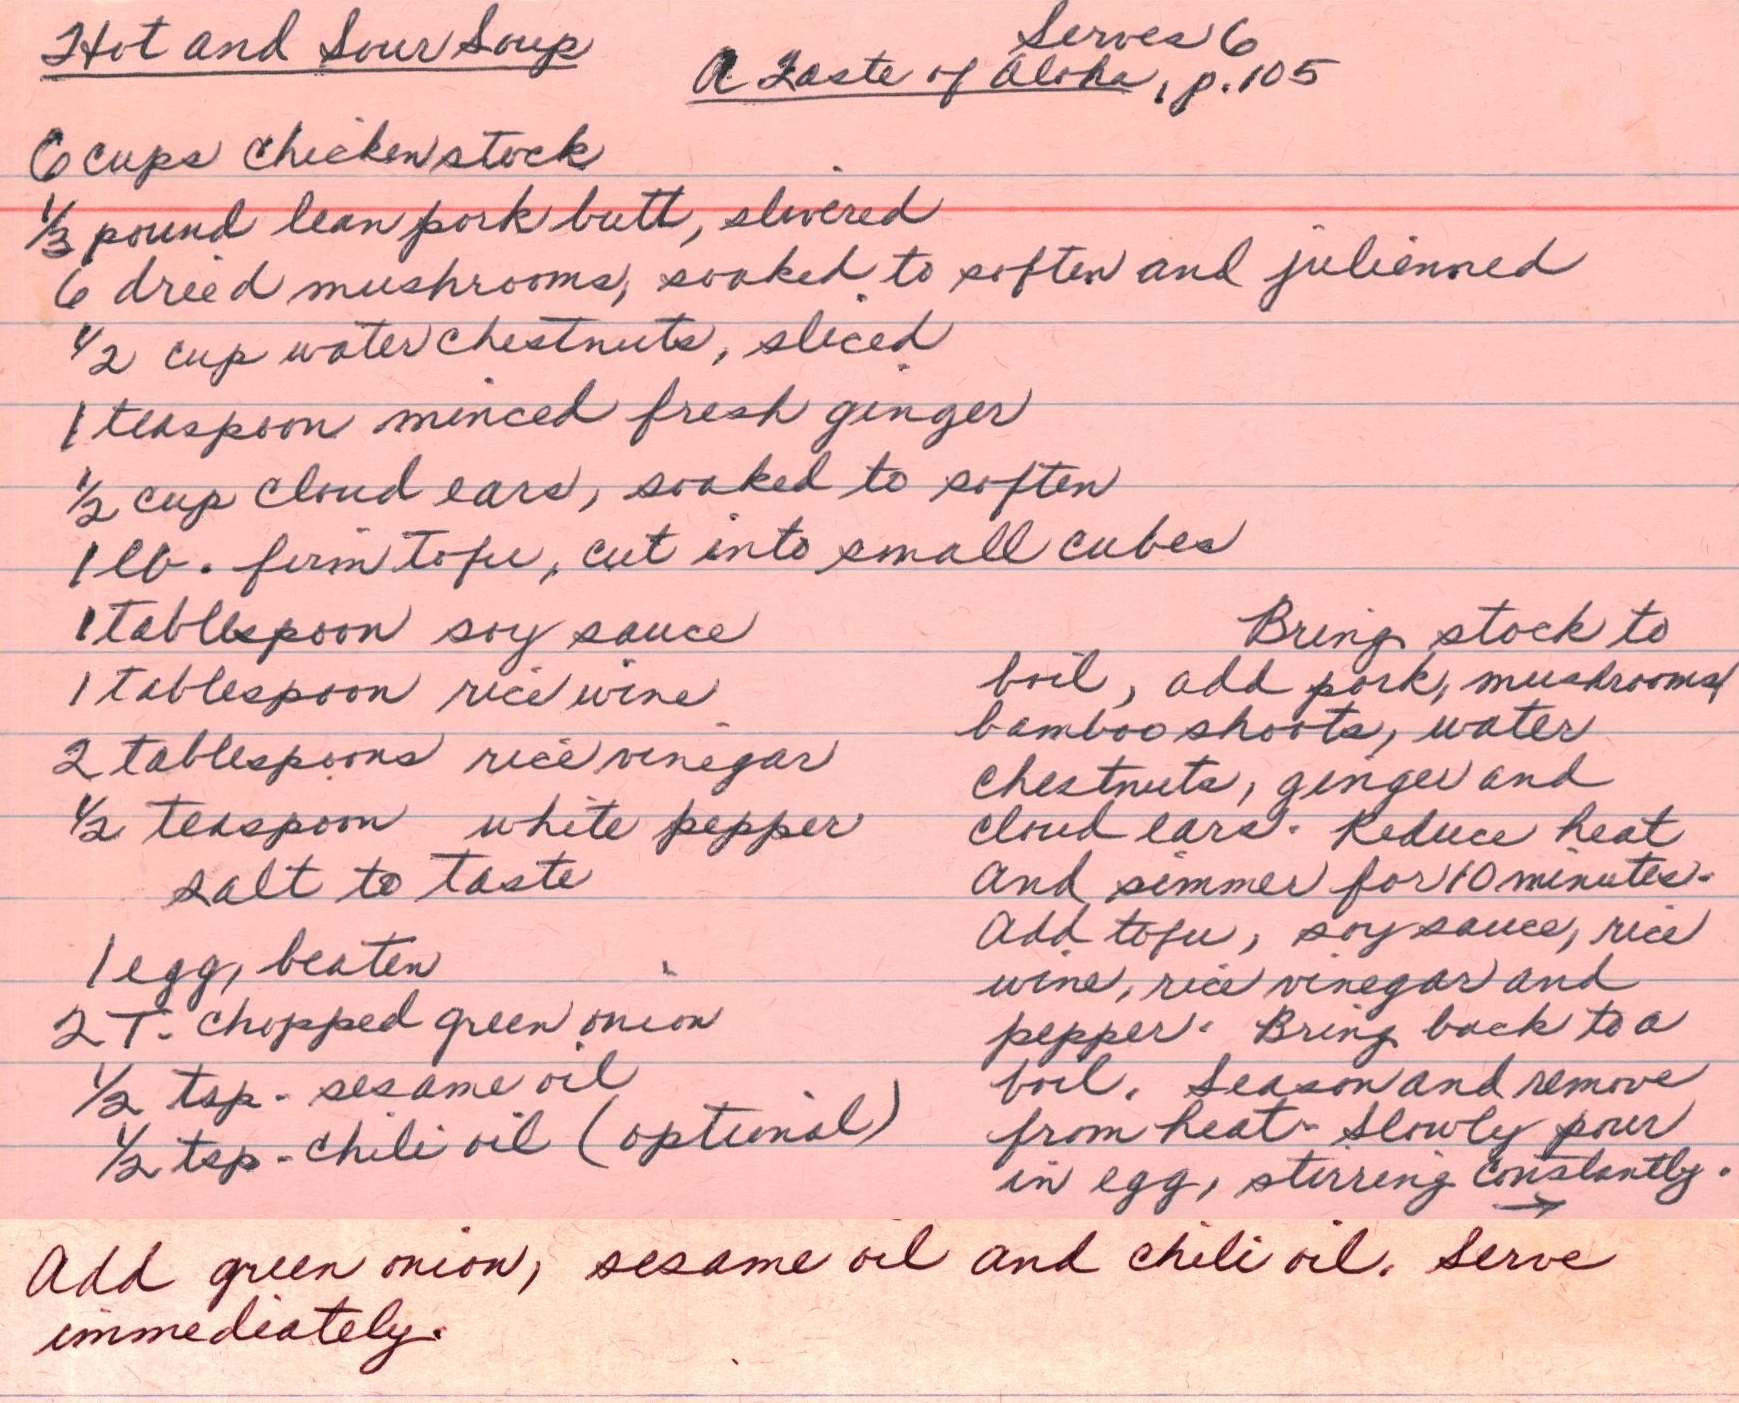 Hot and Sour Soup
Serves 6
A Taste of Aloha, p.105
6 cups chicken stock
1/3 pound lean pork butt, slivered
6 dried mushrooms, soaked to soften and julienned
1/2 cup water chestnuts, sliced
1 teaspoon minced fresh ginger
1/2 cup cloud ears, soaked to soften
1 lb. firm tofu, cut into small cubes
1 tablespoon soy sauce
1 tablespoon rice wine
2 tablespoons rice vinegar
1/2 teaspoon white pepper
salt to taste
1 egg, beaten
2 T. chopped green onion
1/2 tsp. sesame oil
1/2 tsp. chili oil (optional)
Bring stock to
boil, add pork, mushrooms,
bamboo shoots, water
chestnuts, ginger and
cloud ears. Reduce heat
and simmer for 10 minutes.
Add tofu, soy sauce, rice
wine, rice vinegar and
pepper. Bring back to a
boil. Season and remove
from heat. Slowly pour
in egg, stirring constantly.
→
Add green onion, sesame oil and chili oil. Serve
immediately.